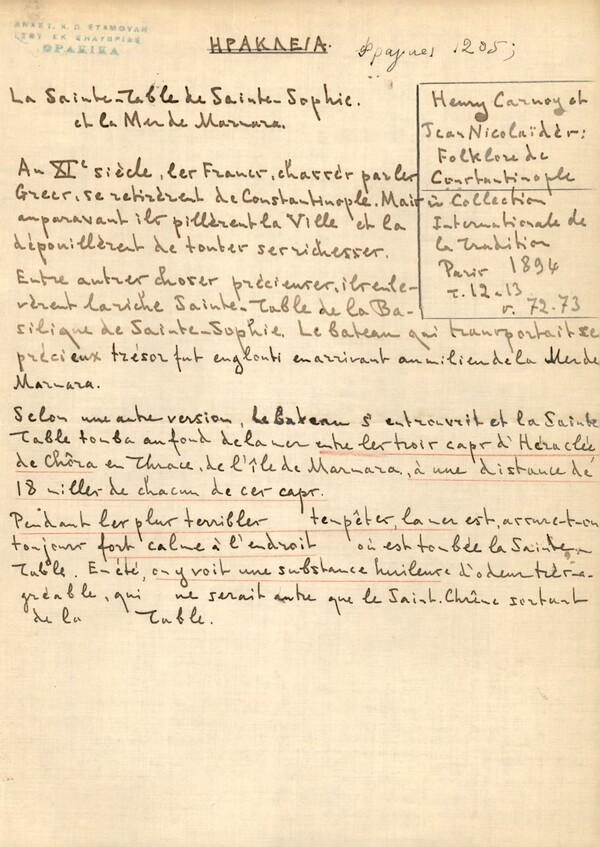 ΑΝΑΣΤ. Κ. Π. ΣΤΑΜΟΥΛΗ
ΤΟΥ ΕΚ ΣΗΛΥΒΡΙΑΣ
ΘΡΑΚΙΚΑ
ΗΡΑΚΛΕΙΑ. Φράγκες 1205;
La Sainte-Table de Sainte-Sophie.
et la Mer de Marmara.
Henry Carnoy et
Jean Nicolaïdès:
Folklore de
Constantinople
in Collection
Internationale de
la Tradition
Paris 1894
τ. 12-13
σ. 72-73
Au XIe siècle, les Francs, chassés par les
Grecs, se retirèrent de Constantinople. Mais
auparavant ils pillèrent la Ville et la
dépouillèrent de toutes ses richesses.
Entre autres choses précieuses, ils enle-
vèrent la riche Sainte-Table de la Ba-
silique de Sainte-Sophie. Le bateau qui transportait se
précieux trésor fut englouti en arrivant au milieu de la Mer de
Marmara.
Selon une autre version, le bateau s'entrouvrit et la Sainte
Table tomba au fond de la mer entre les trois caps d'Héraclée
de Chôra en Thrace, de l'île de Marmara, à une distance de
18 milles de chacun de ces caps.
Pendant les plus terribles tempêtes, la mer est, assure-t-on
toujours fort calme à l'endroit où est tombée la Sainte-
Table. En été, on y voit une substance huileuse d'odeur très a-
gréable, qui ne serait autre que le Saint-Chrême sortant
de la Table.